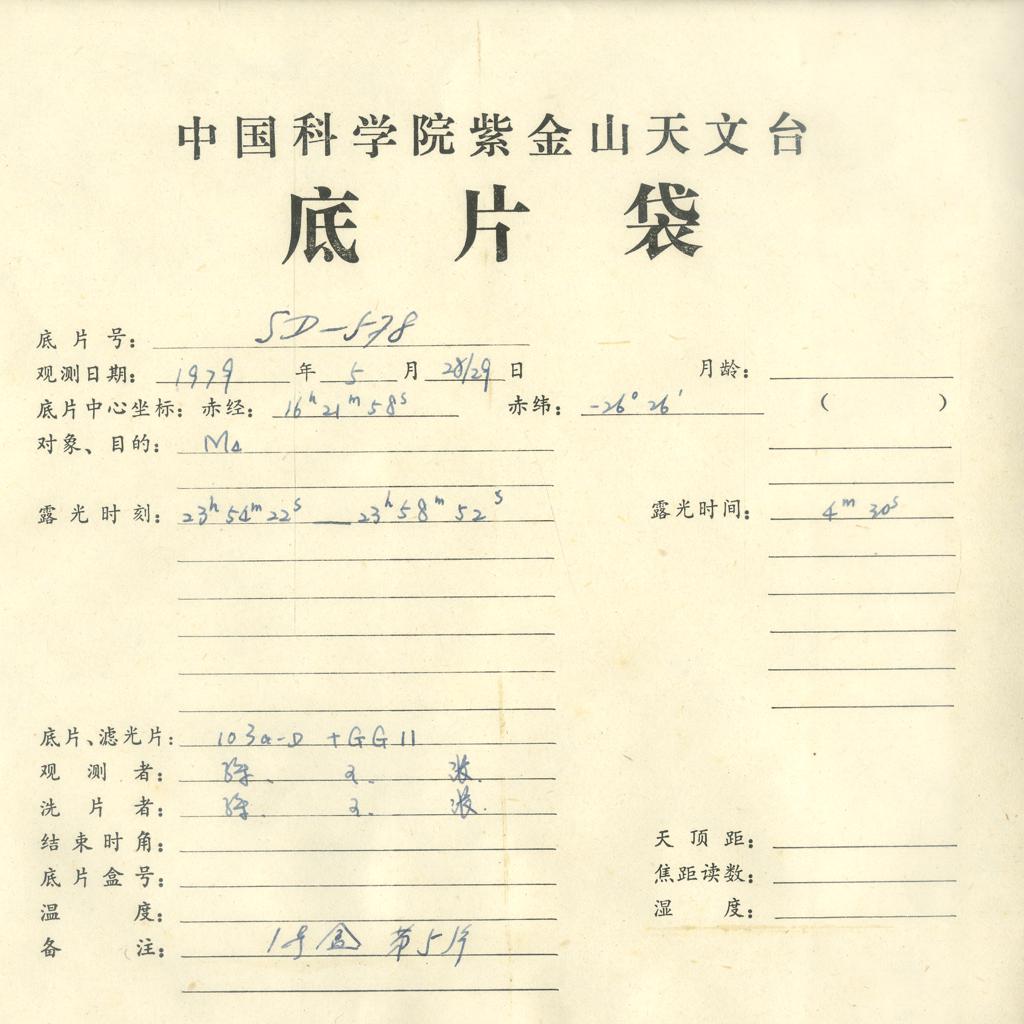 中国科学院紫金山天文台
底片袋
底片号: SD-578
观测日期: 1979 年 5 月 28/29 日 月龄:
底片中心坐标: 赤经: 16h 21m 58s 赤纬: -26° 26′ ( )
对象、目的: M4
露光时刻: 23h 54m 22s — 23h 58m 52s 露光时间: 4m 30s
底片、滤光片: 103a-D + GG 11
观测者:
洗片者:
结束时角: 天顶距:
底片盒号: 焦距读数:
温度: 湿度:
备注: 1号盒 第5片